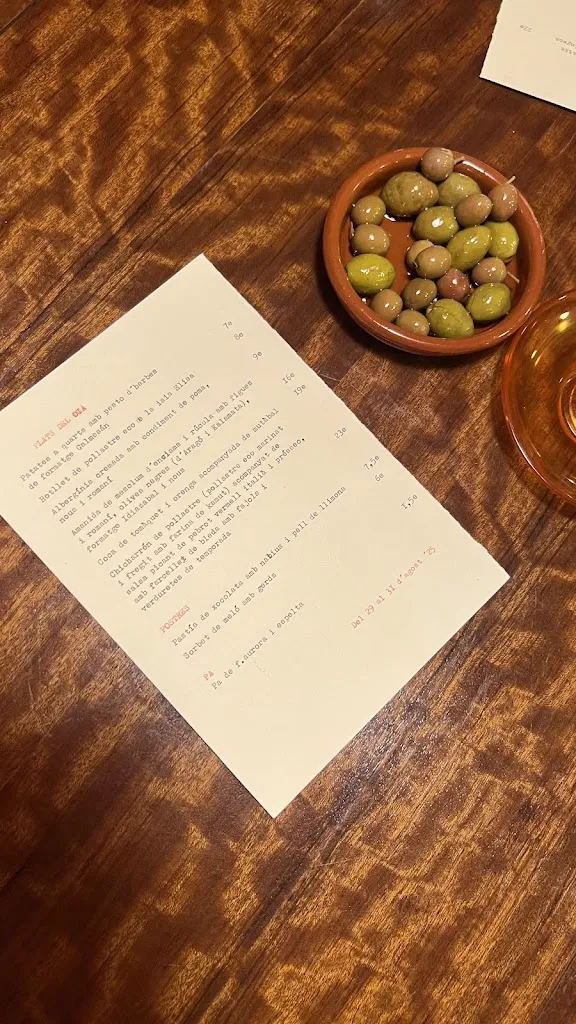 PLATS DEL DIA
Patates a quarts amb pesto d'herbes 7e
de formatge Galmesán
Rotllet de pollastre eco de la laia Elisa 8e
Albergínia cremada amb condiment de poma, 9e
nous i romaní
Amanida de mesclus d'enciams i rúcula amb figues 16e
i romaní, olives negres (d'Aragó i Kalamata),
formatge Idiazabal i nous
Coca de tomàquet i orenga acompanyada de 19e
Chicharrón de pollastre (pollastre eco marinat 23e
i fregit amb farina de kamut) acompanyat de
salsa picant de pebrot vermell italià i préssec,
amb farcellet de bleda amb fajols i
verduretes de temporada
POSTRES
Pastís de xocolata amb nabius i pell de llimona 7,5e
Sorbet de meló amb gerds 6e
PA
Pa de f.aurora i espelta 1,5e
Del 29 al 31 d'agost '25
22e